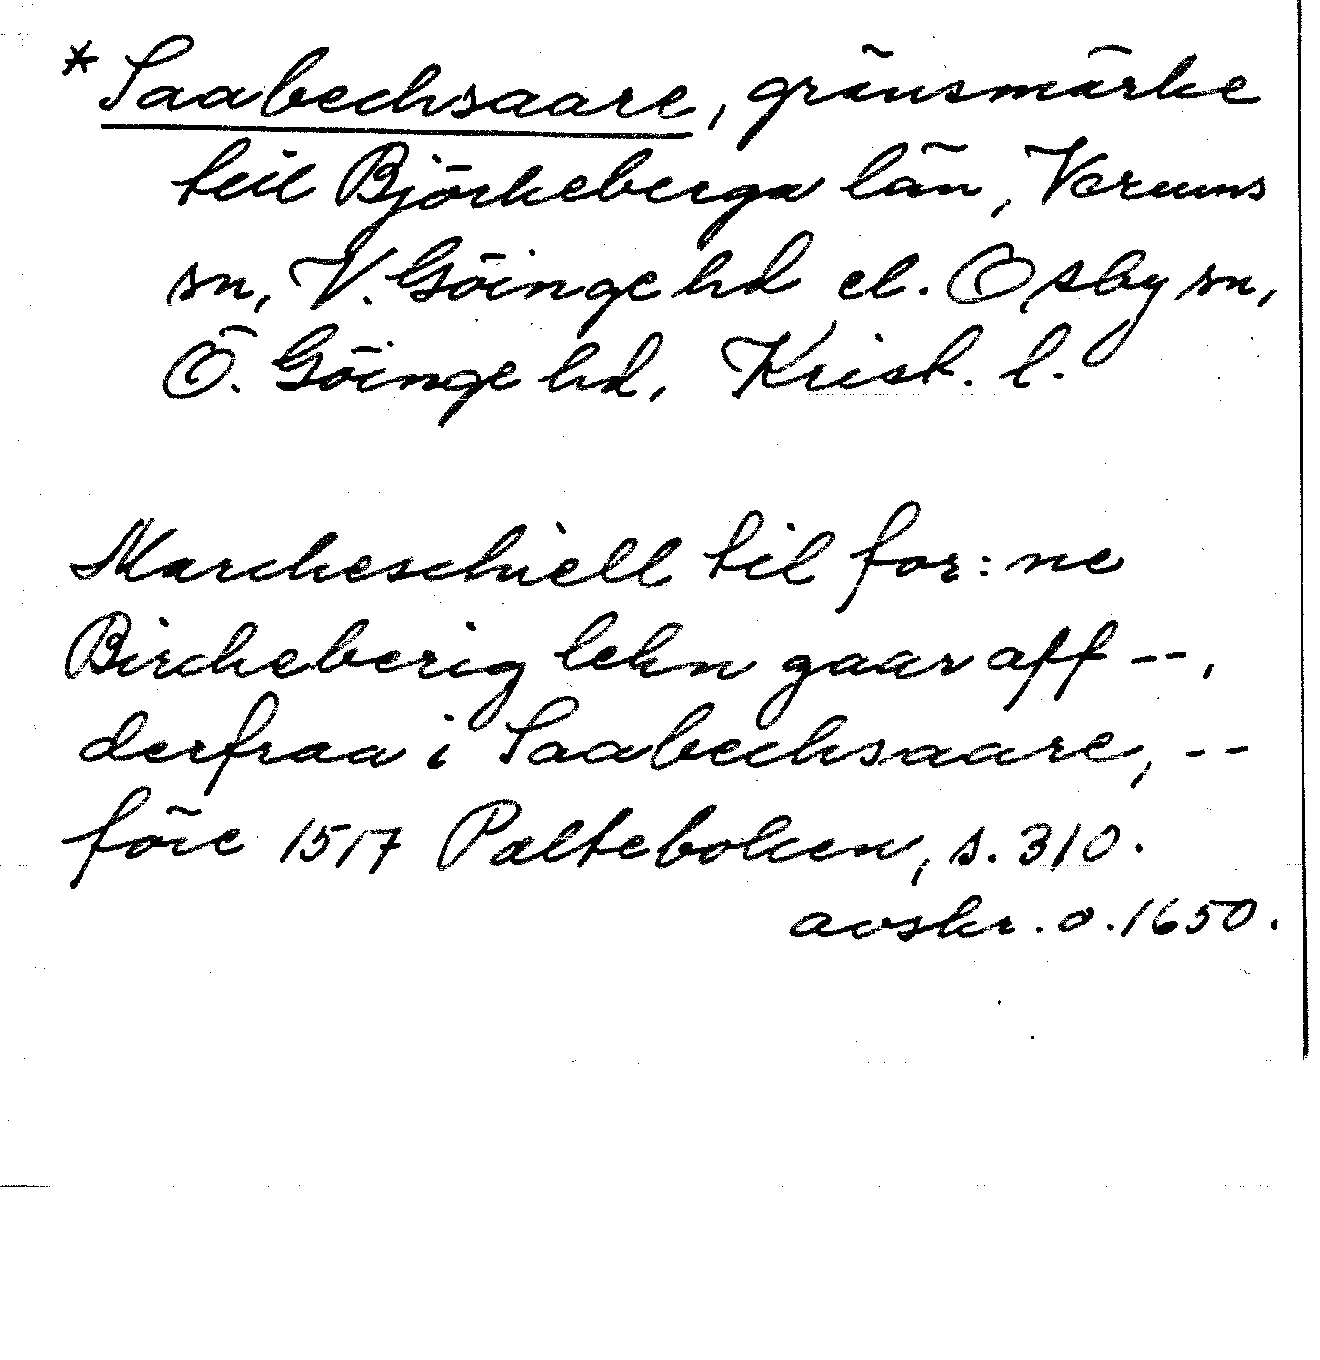 * Saabechsaare, gränsmärke
till Björkeberga län, Verums
sn, V. Göinge hd el. Osby sn,
Ö. Göinge hd, Krist. l.
Marcheschiell til for:ne
Bircheberig lehn gaar aff --,
derfraa i Saabechsaare, --
före 1517 Palteboken, s. 310.
avskr. o. 1650.